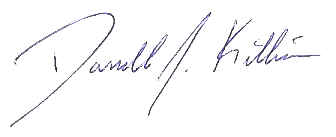 Darrell J. Killian